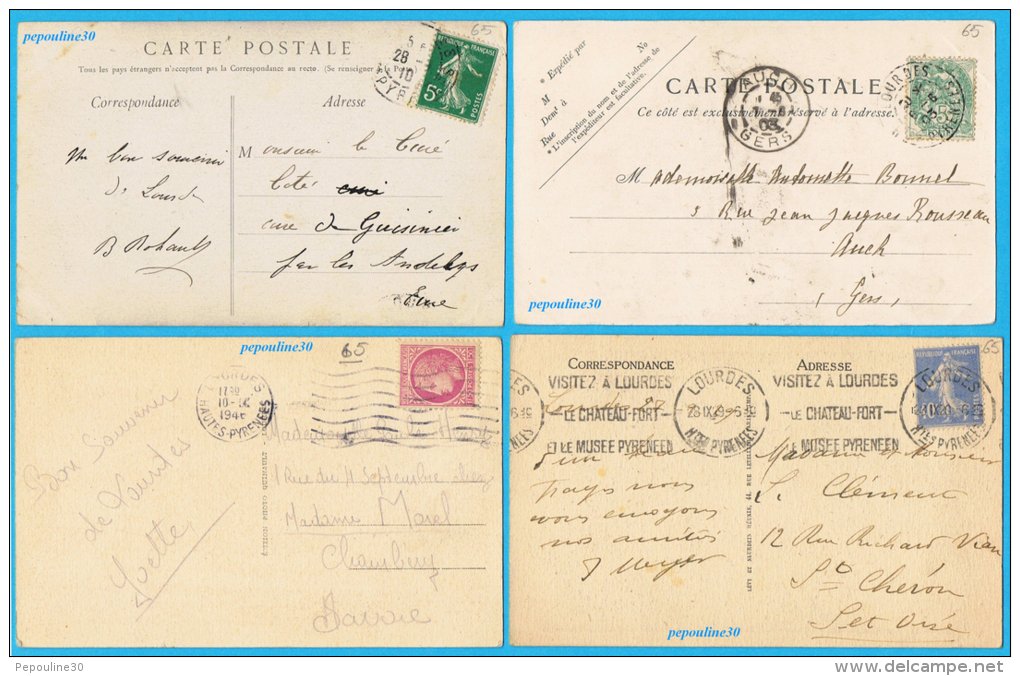 pepouline30
65
CARTE POSTALE
Tous les pays étrangers n'acceptent pas la Correspondance au recto. (Se renseigner à la Poste)
Correspondance
Adresse
REPUBLIQUE FRANÇAISE
5c
28
10
Un bon souvenir
de Lourdes
B Rohault
Monsieur le Curé
curé de Guisinier
par les Andelys
Eure
65
* Expédié par
M
Demt à
Rue
No
* L'inscription du nom et de l'adresse de
l'expéditeur est facultative.
CARTE POSTALE
Ce côté est exclusivement réservé à l'adresse.
AUCH
03
GERS
LOURDES
Mademoiselle Antoinette Bonnet
5 Rue Jean Jacques Rousseau
Auch
(Gers)
pepouline30
pepouline30
65
LOURDES
10-
1946
HAUTES-PYRENEES
Bon Souvenir
de Lourdes
Yvette
ÉDITION PHOTO QUINAULT
Mademoiselle
1 Rue du 11 Septembre chez
Madame Morel
Chambéry
Savoie
65
CORRESPONDANCE
ADRESSE
REPUBLIQUE FRANÇAISE
VISITEZ À LOURDES
—LE CHÂTEAU-FORT—
ET LE MUSÉE PYRÉNÉEN
LOURDES
28 IX 29
HTES PYRENEES
VISITEZ À LOURDES
—LE CHÂTEAU-FORT—
LE MUSÉE PYRÉNÉEN
LOURDES
HTES PYRENEES
nous
vous envoyons
nos amitiés
J Meyer
LÉVY ET NEURDEIN RÉUNIS, 44, RUE LETELLIER
Madame et Monsieur
S. Clément
12 Rue Richard Vian
St Chéron
S et Oise
pepouline30
Pepouline30
www.delcampe.net